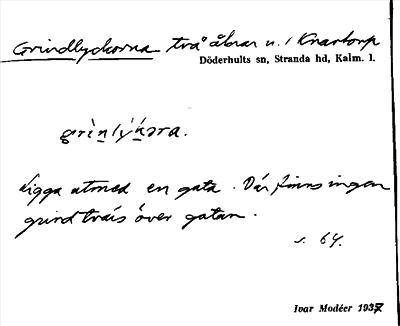 Grindlyckorna två åkrar u. / Knartorp
Döderhults sn, Stranda hd, Kalm. l.
grìnlýkəra.
Ligga utmed en gata. Där finns ingen
grind tvärs över gatan.
s. 64.
Ivar Modéer 1937